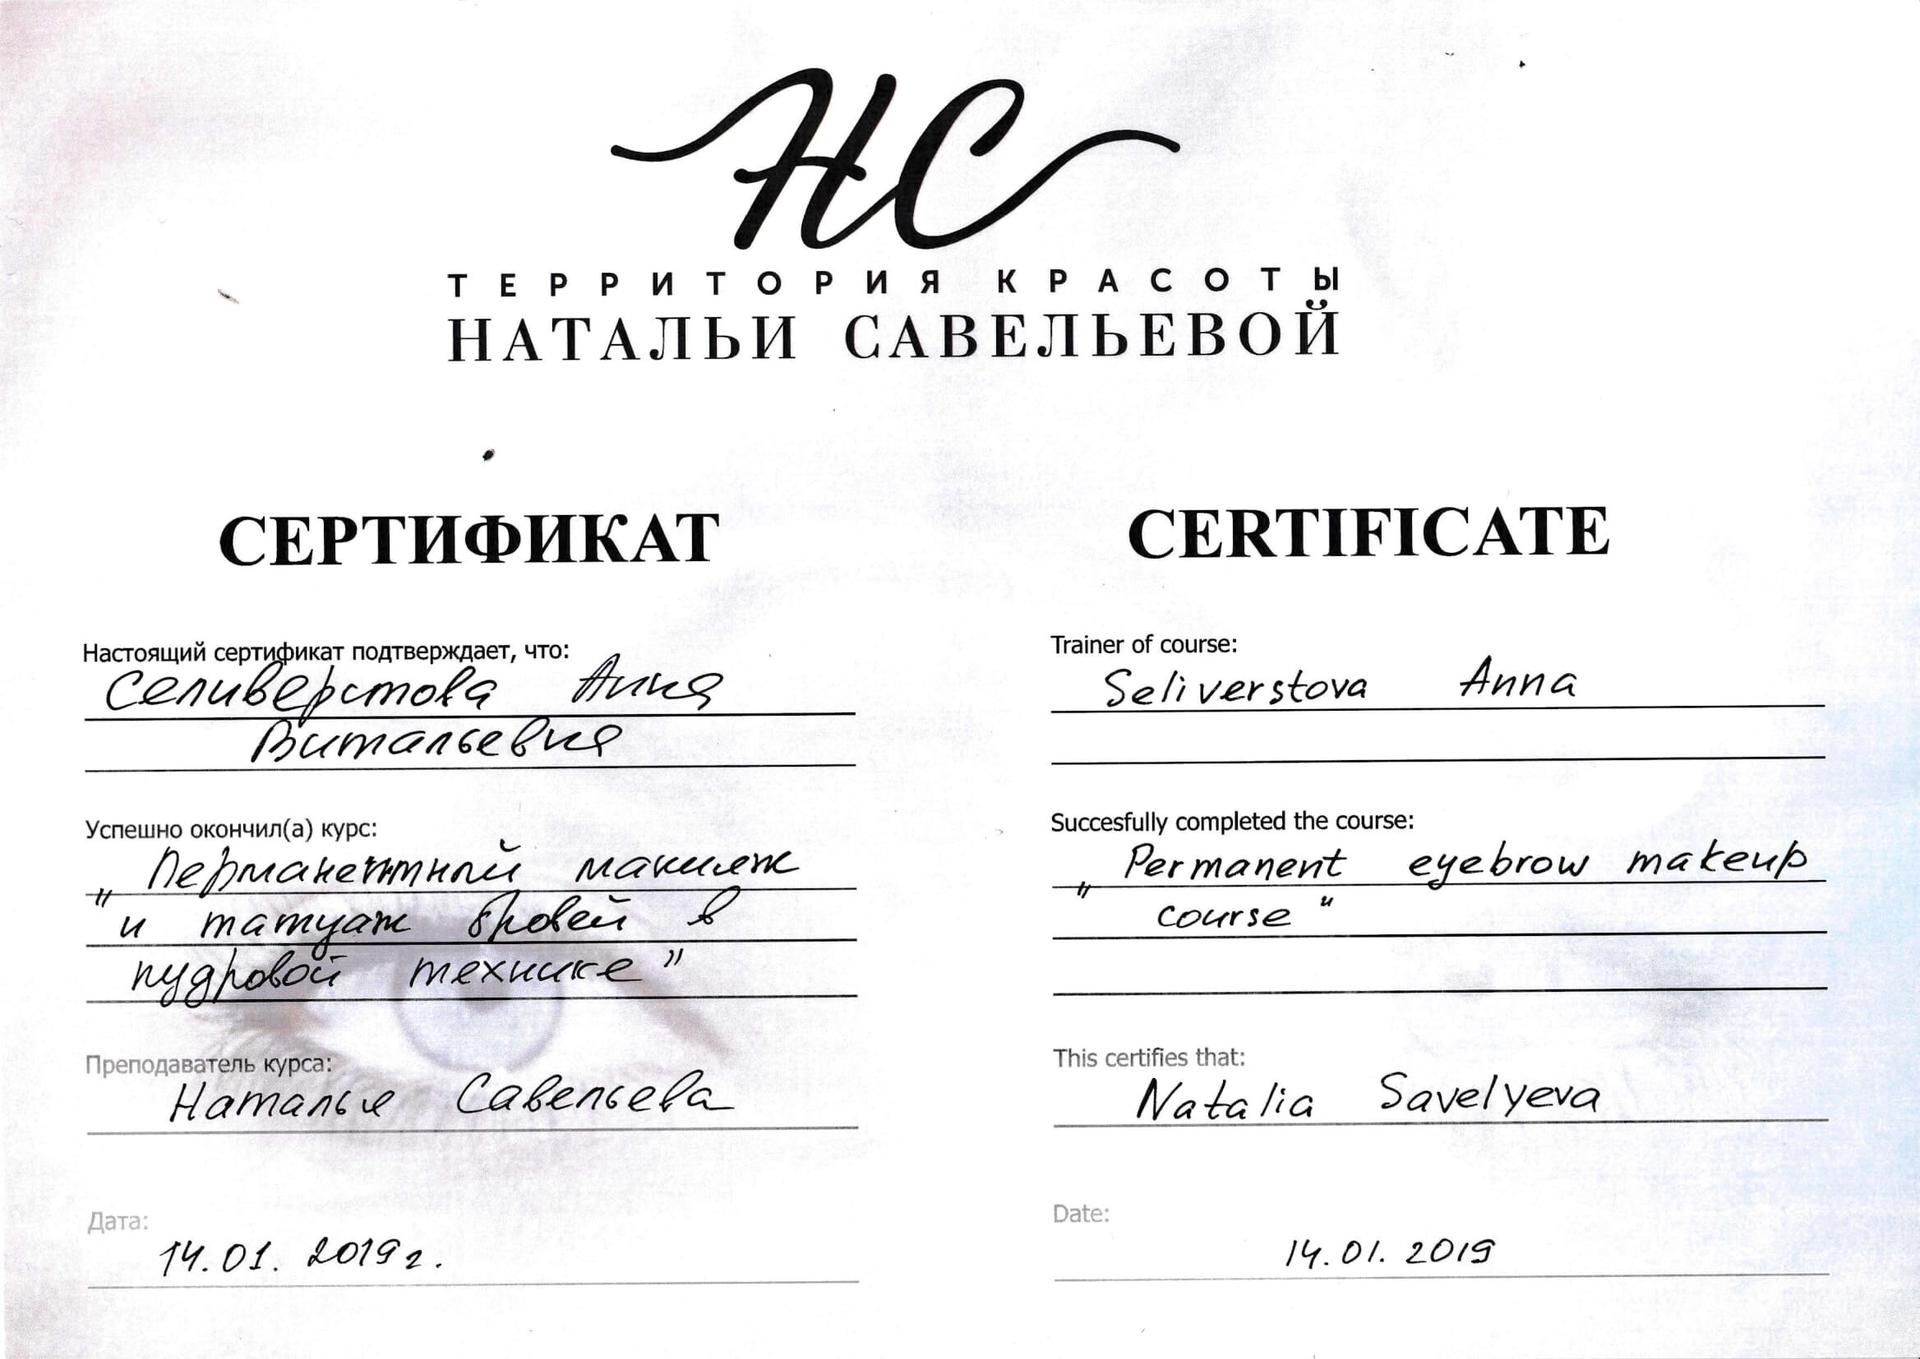 НС
ТЕРРИТОРИЯ КРАСОТЫ
НАТАЛЬИ САВЕЛЬЕВОЙ
СЕРТИФИКАТ
Настоящий сертификат подтверждает, что:
Селиверстова Анна
Витальевна
Успешно окончил(а) курс:
„Перманентный макияж
и татуаж бровей в
пудровой технике"
Преподаватель курса:
Наталья Савельева
Дата:
14.01.2019г.
CERTIFICATE
Trainer of course:
Seliverstova Anna
Succesfully completed the course:
„Permanent eyebrow makeup
course"
This certifies that:
Natalia Savelyeva
Date:
14.01.2019